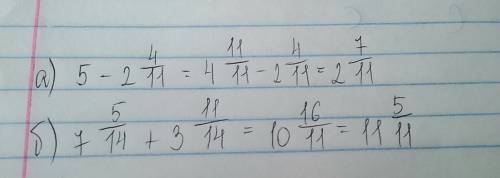 а) 5 - 2 4/11 = 4 11/11 - 2 4/11 = 2 7/11
б) 7 5/14 + 3 11/14 = 10 16/11 = 11 5/11